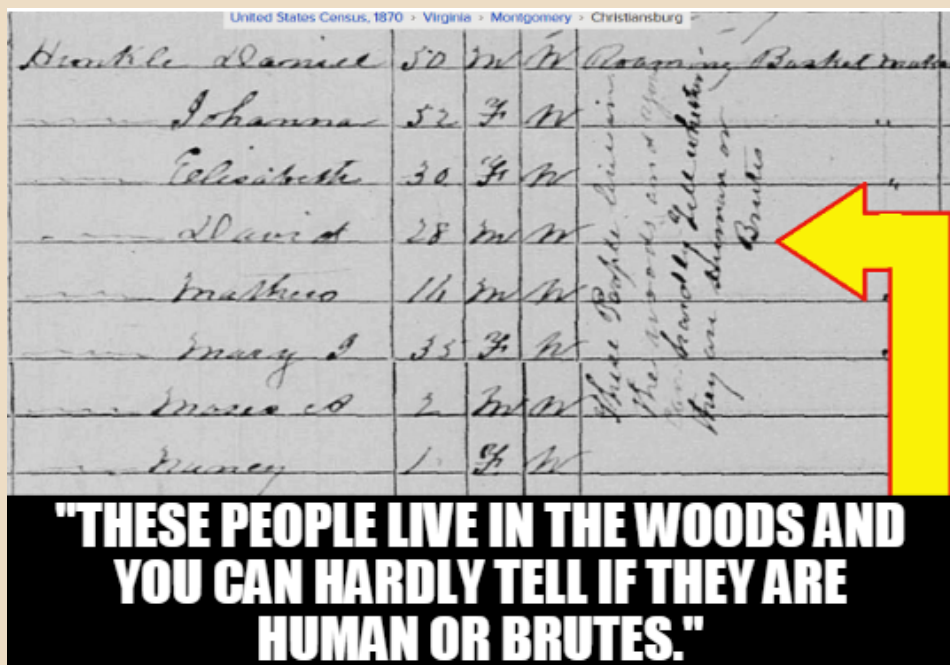 United States Census, 1870 › Virginia › Montgomery › Christiansburg
Hunkle Daniel 50 M W Roaming Basket Maker
Johanna 52 F W "
Elisabeth 30 F W "
David 28 M W
Mathew 14 M W
Mary J 35 F W
Moses A 2 M W
Nancy 1 F W
These People live in
the woods and you
can hardly Tell whether
they are Human or
Brutes
"THESE PEOPLE LIVE IN THE WOODS AND
YOU CAN HARDLY TELL IF THEY ARE
HUMAN OR BRUTES."